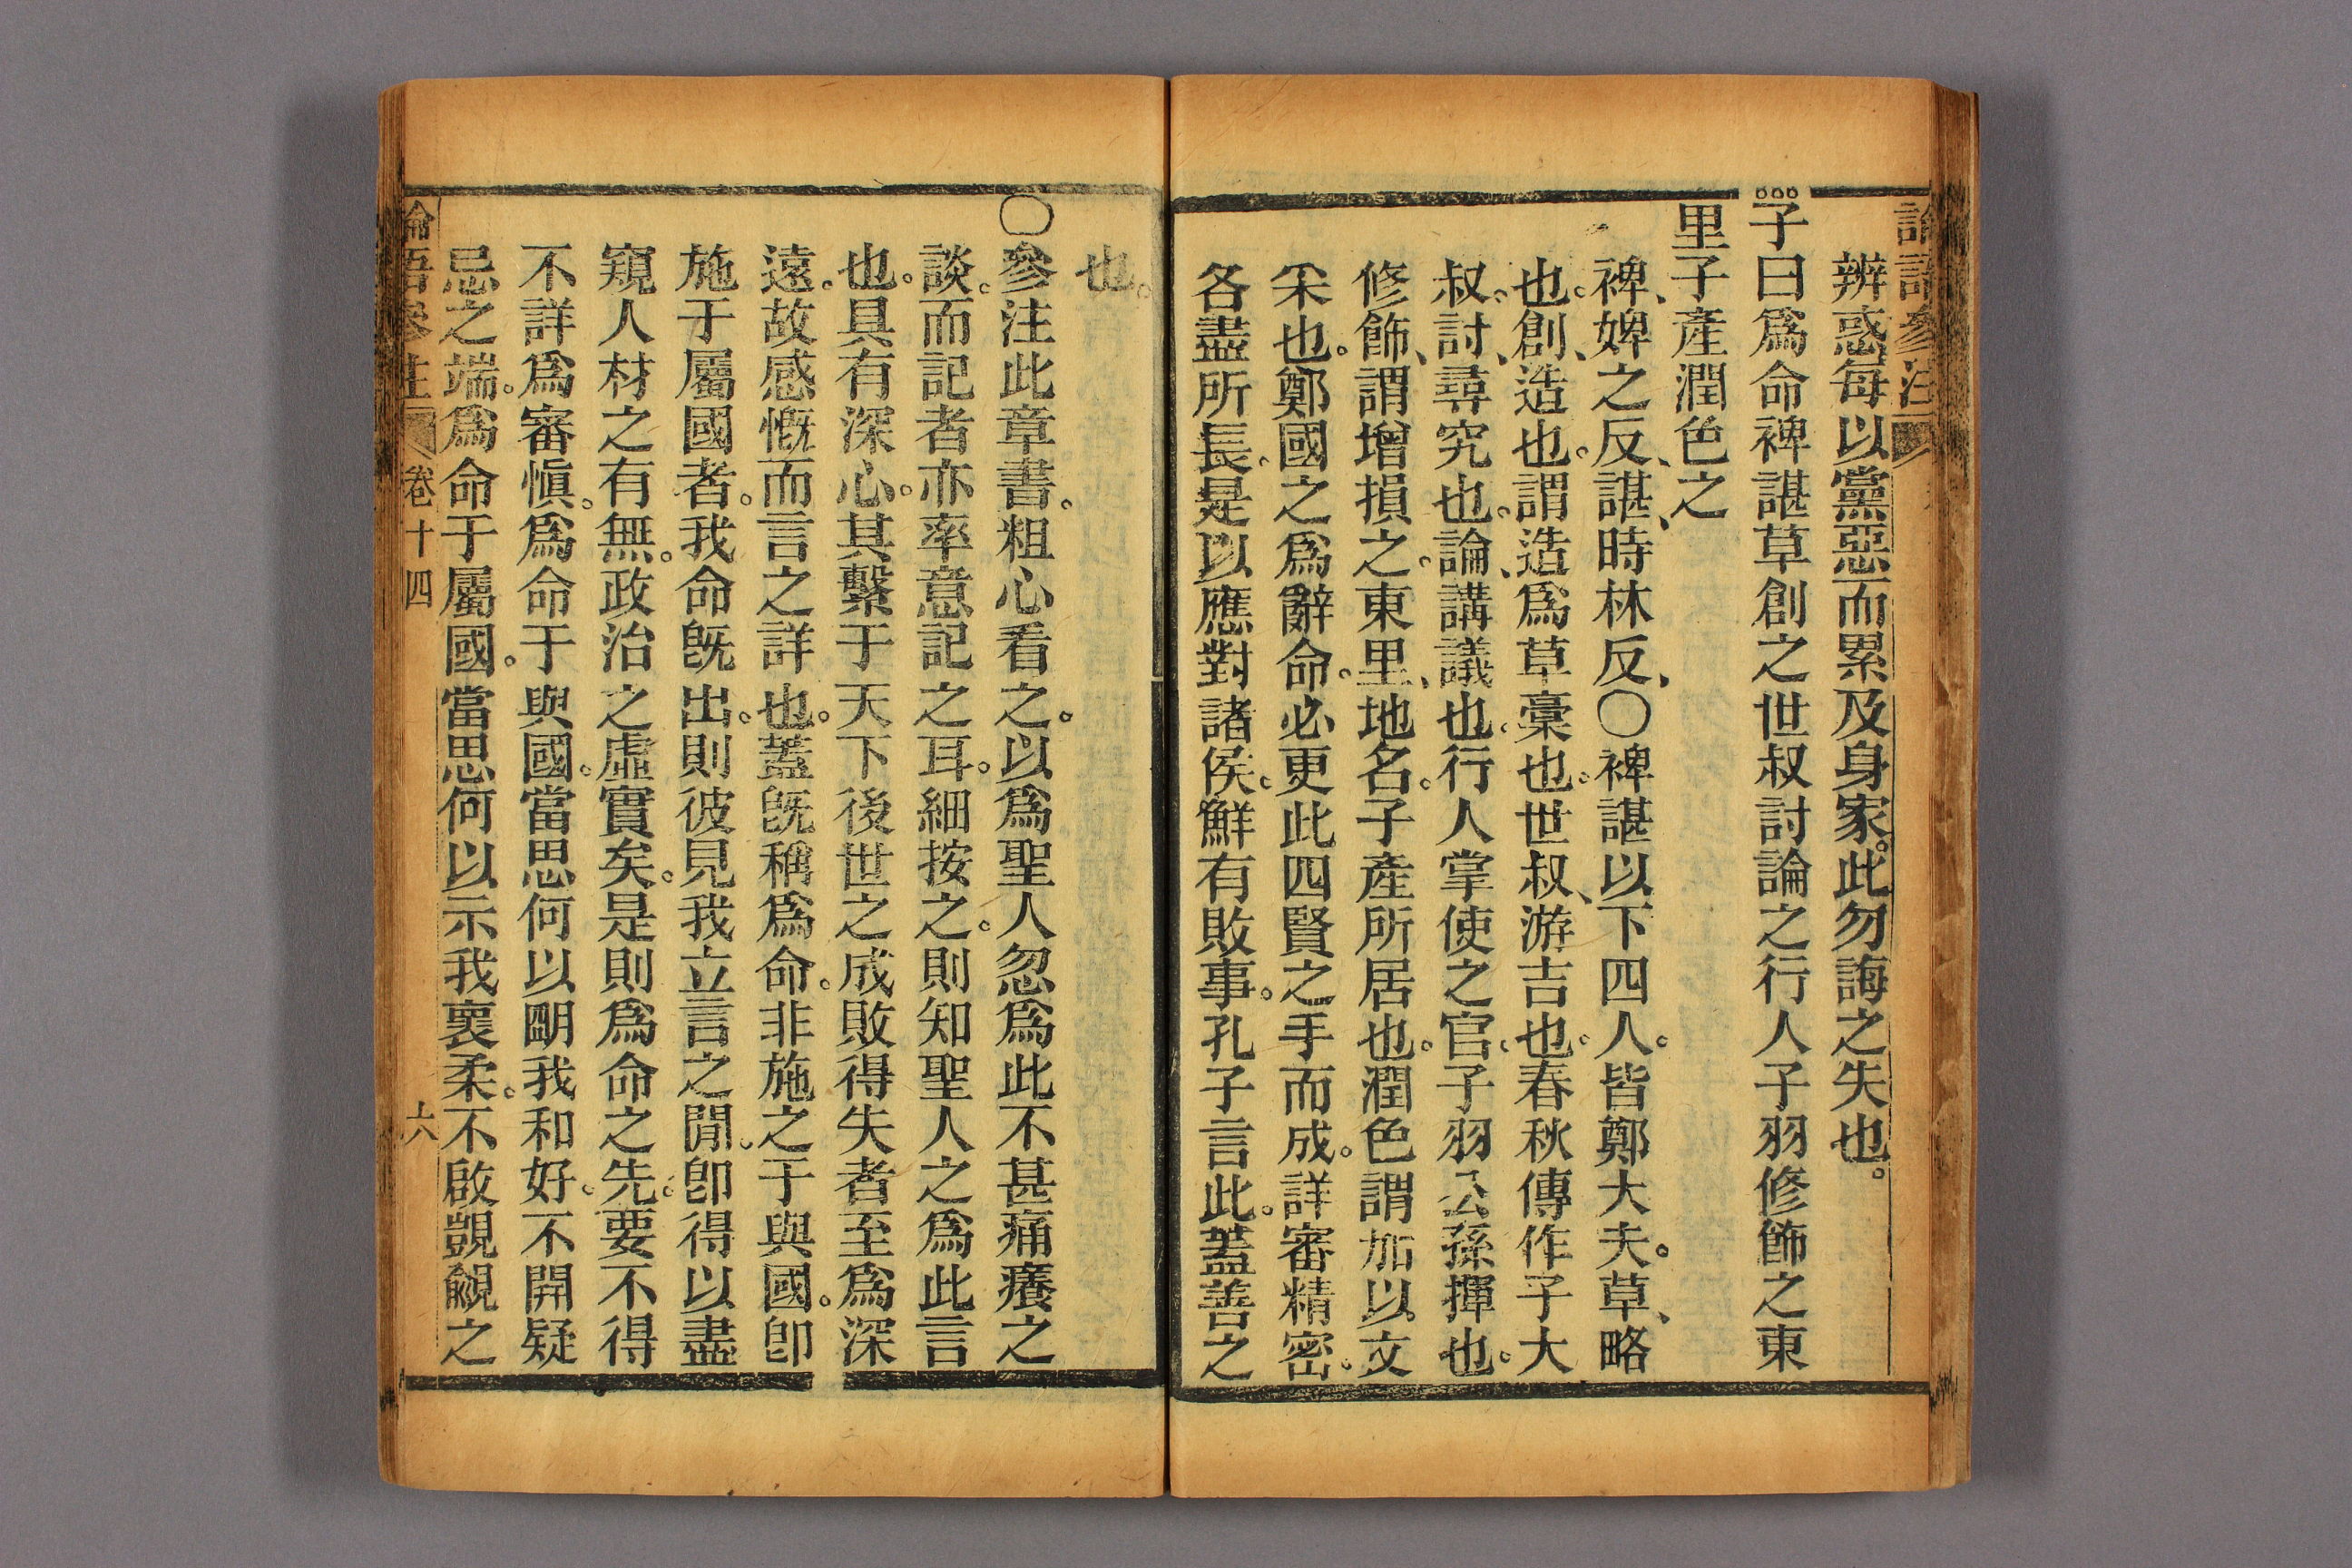 辨惑每以黨惡而累及身家。此勿誨之失也。
子曰爲命裨諶草創之世叔討論之行人子羽修飾之東
里子產潤色之
裨、婢之反、諶、時林反、〇裨諶以下四人。皆鄭大夫。草、略
也。創、造也。謂造爲草稾也。世叔、游吉也。春秋傳作子大
叔。討、尋究也。論、講議也。行人掌使之官。子羽公孫揮也。
修飾、謂增損之。東里、地名。子產所居也。潤色謂加以文
采也。鄭國之爲辭命。必更此四賢之手而成。詳審精密。
各盡所長。是以應對諸侯。鮮有敗事。孔子言此。蓋善之
也。
〇參注此章書。粗心看之。以爲聖人忽爲此不甚痛癢之
談。而記者亦率意記之耳。細按之。則知聖人之爲此言
也。具有深心。其繫于天下後世之成敗得失者至爲深
遠。故感慨而言之詳也。蓋旣稱爲命。非施之于與國。卽
施于屬國者。我命旣出。則彼見我立言之閒。卽得以盡
窺人材之有無。政治之虛實矣。是則爲命之先。要不得
不詳爲審愼。爲命于與國。當思何以明我和好。不開疑
忌之端。爲命于屬國。當思何以示我褱柔。不啟覬覦之
論語參注 卷十四 六